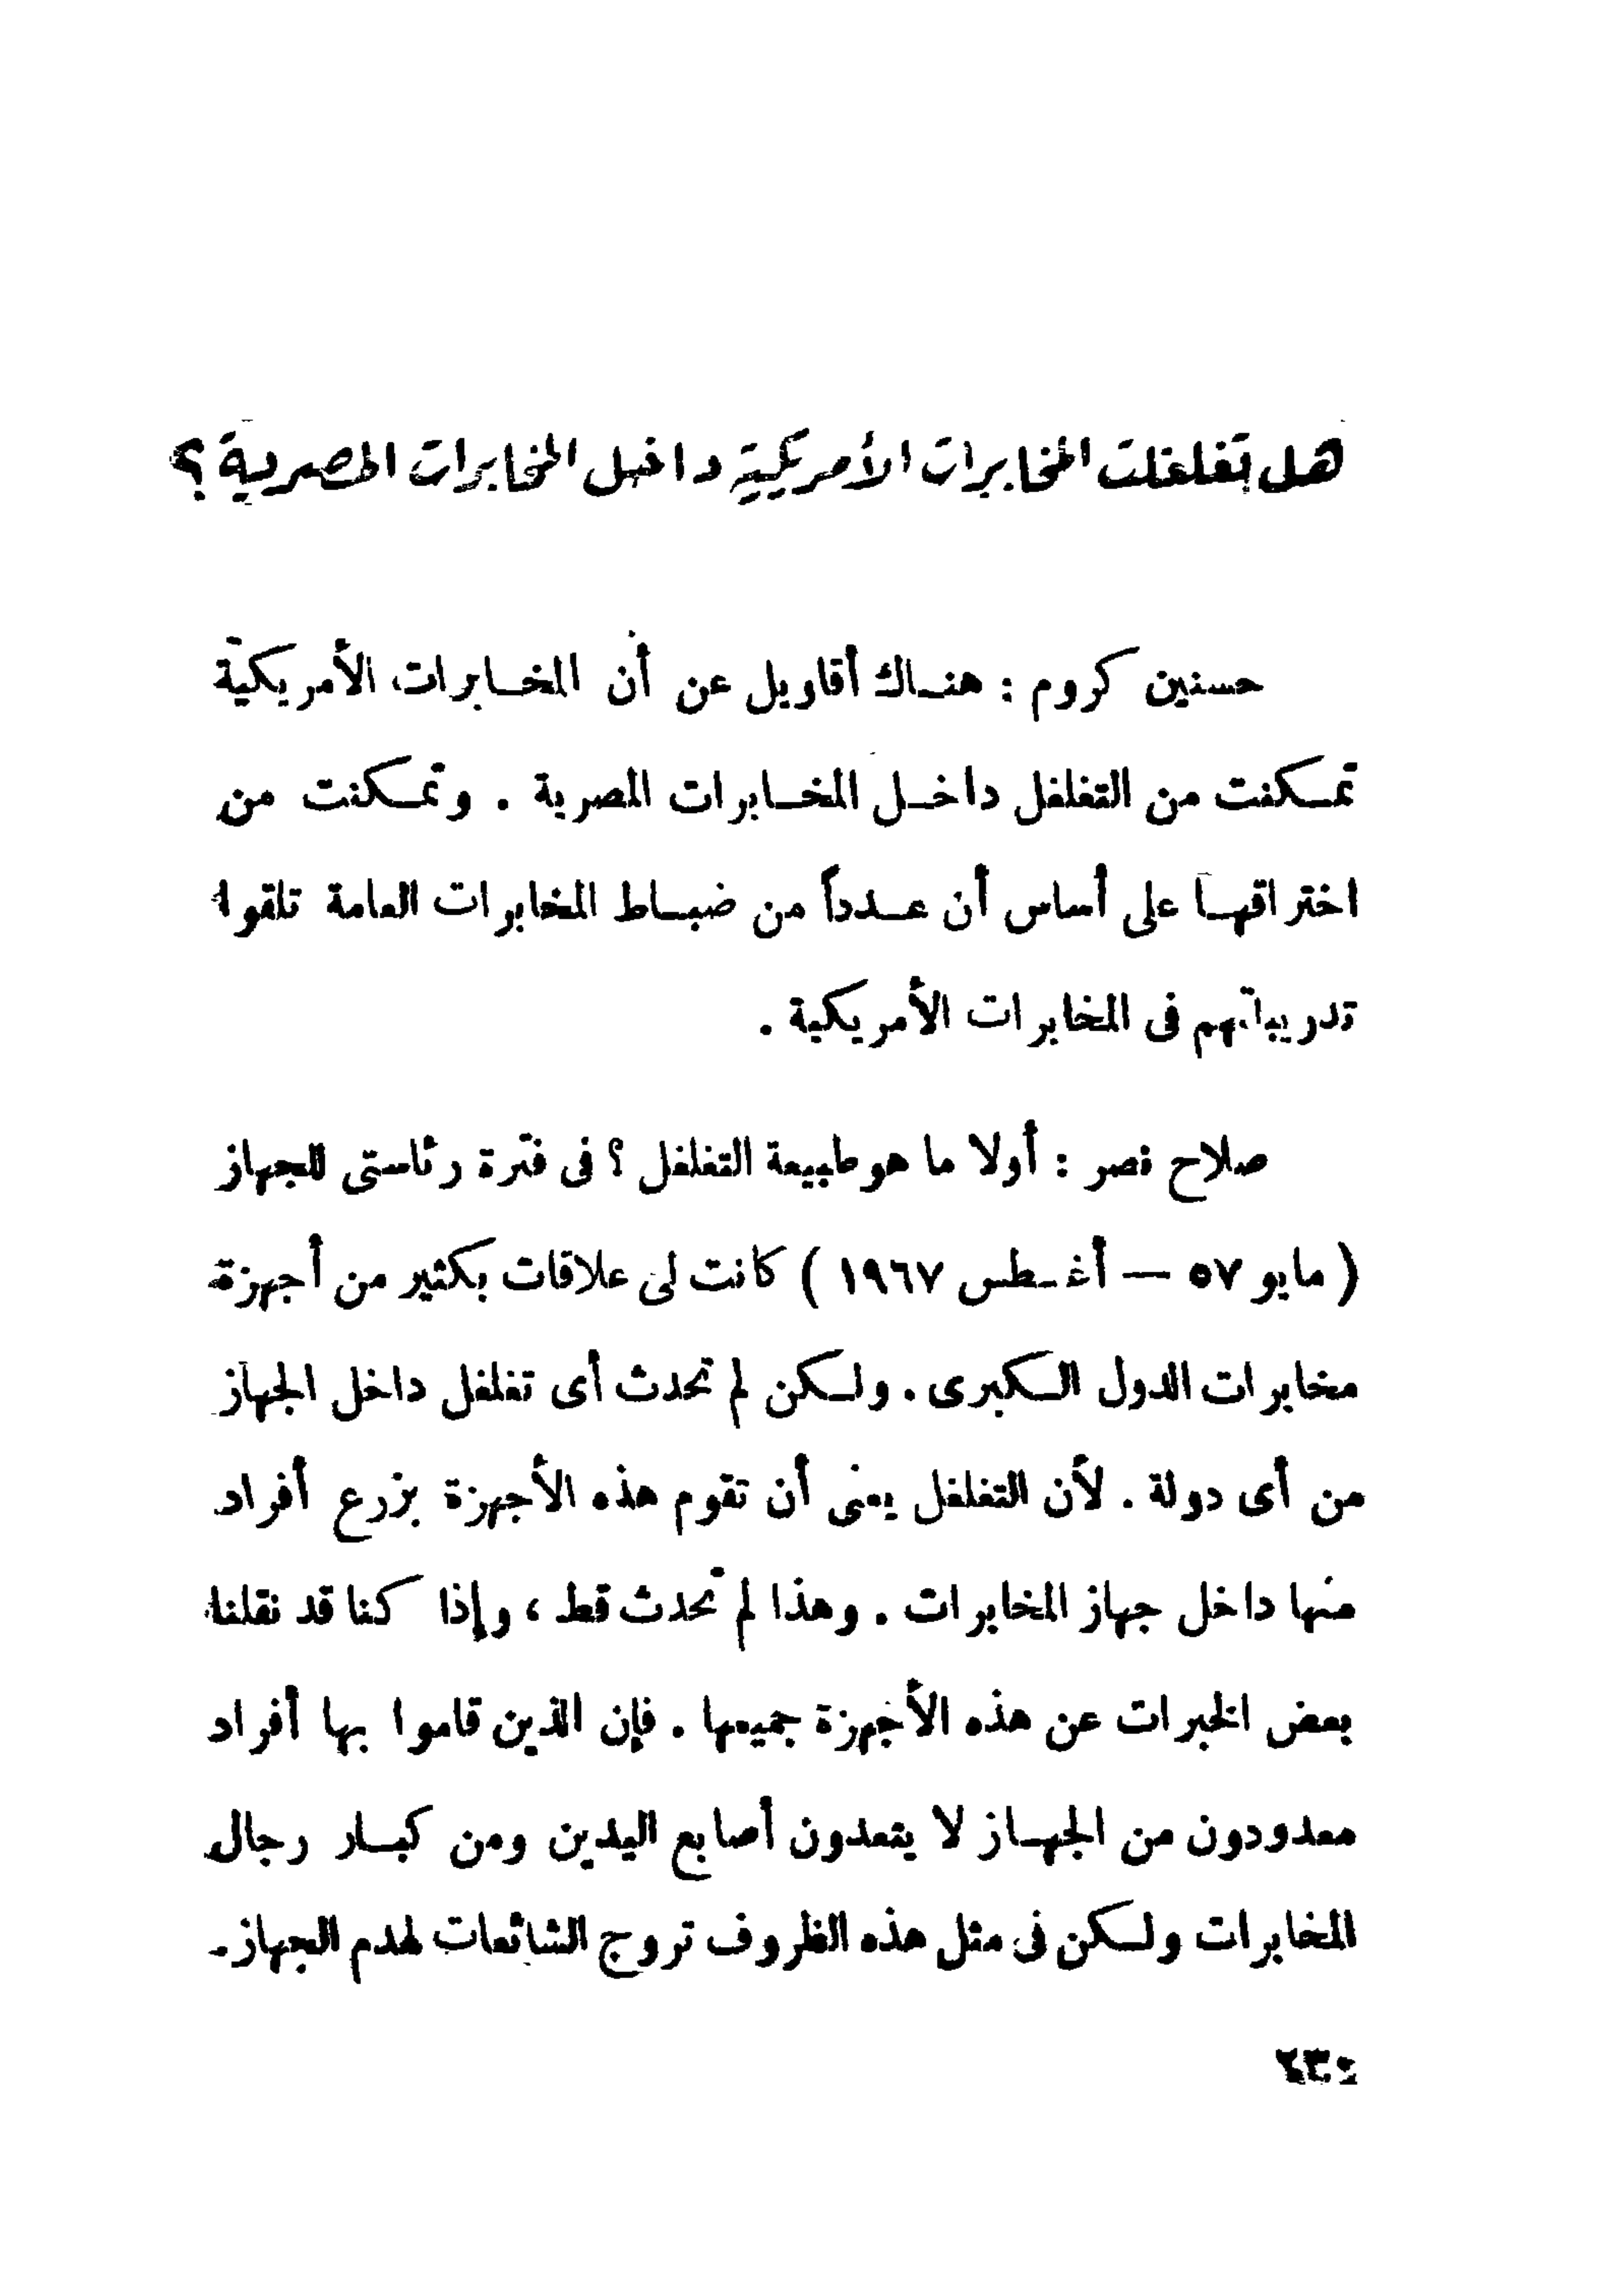 هل تغلغلت المخابرات الأمريكية داخل المخابرات المصرية ؟
حسنين كروم : هناك أقاويل عن أن المخابرات الأمريكية
تمكنت من التغلغل داخل المخابرات المصرية . وتمكنت من
اختراقها على أساس أن عدداً من ضباط المخابرات العامة تلقوا
تدريباتهم فى المخابرات الأمريكية .
صلاح نصر : أولا ما هو طبيعة التغلغل ؟ فى فترة رئاستى للجهاز
( مايو ٥٧ — أغسطس ١٩٦٧ ) كانت لى علاقات بكثير من أجهزة
مخابرات الدول الكبرى . ولكن لم تحدث أى تغلغل داخل الجهاز
من أى دولة . لأن التغلغل يعنى أن تقوم هذه الأجهزة بزرع أفراد
منها داخل جهاز المخابرات . وهذا لم تحدث قط ، وإذا كنا قد نقلنا
بعض الخبرات عن هذه الأجهزة جميعها . فإن الذين قاموا بها أفراد
معدودون من الجهاز لا يتعدون أصابع اليدين ومن كبار رجال
المخابرات ولكن فى مثل هذه الظروف تروج الشائعات لهدم الجهاز .